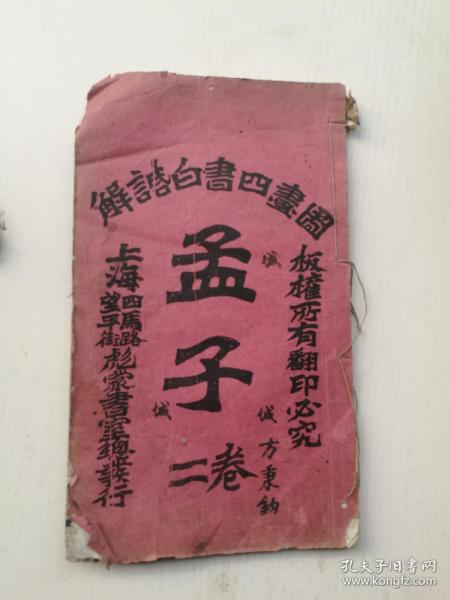 圖畫四書白話解
板權所有翻印必究
孟子
卷二
上海四馬路望平街彪蒙書室總發行
城
城
方秉鈞
孔夫子旧书网
www.kongfz.com